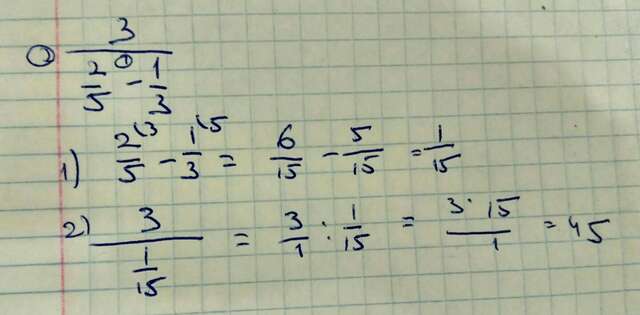 ② 3 / (2/5 ① − 1/3)
1) 2/5 (3 − 1/3 (5 = 6/15 − 5/15 = 1/15
2) 3 / (1/15) = 3/1 : 1/15 = 3·15/1 = 45